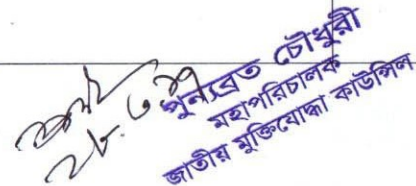 পুন্যব্রত চৌধুরী
মহাপরিচালক
জাতীয় মুক্তিযোদ্ধা কাউন্সিল